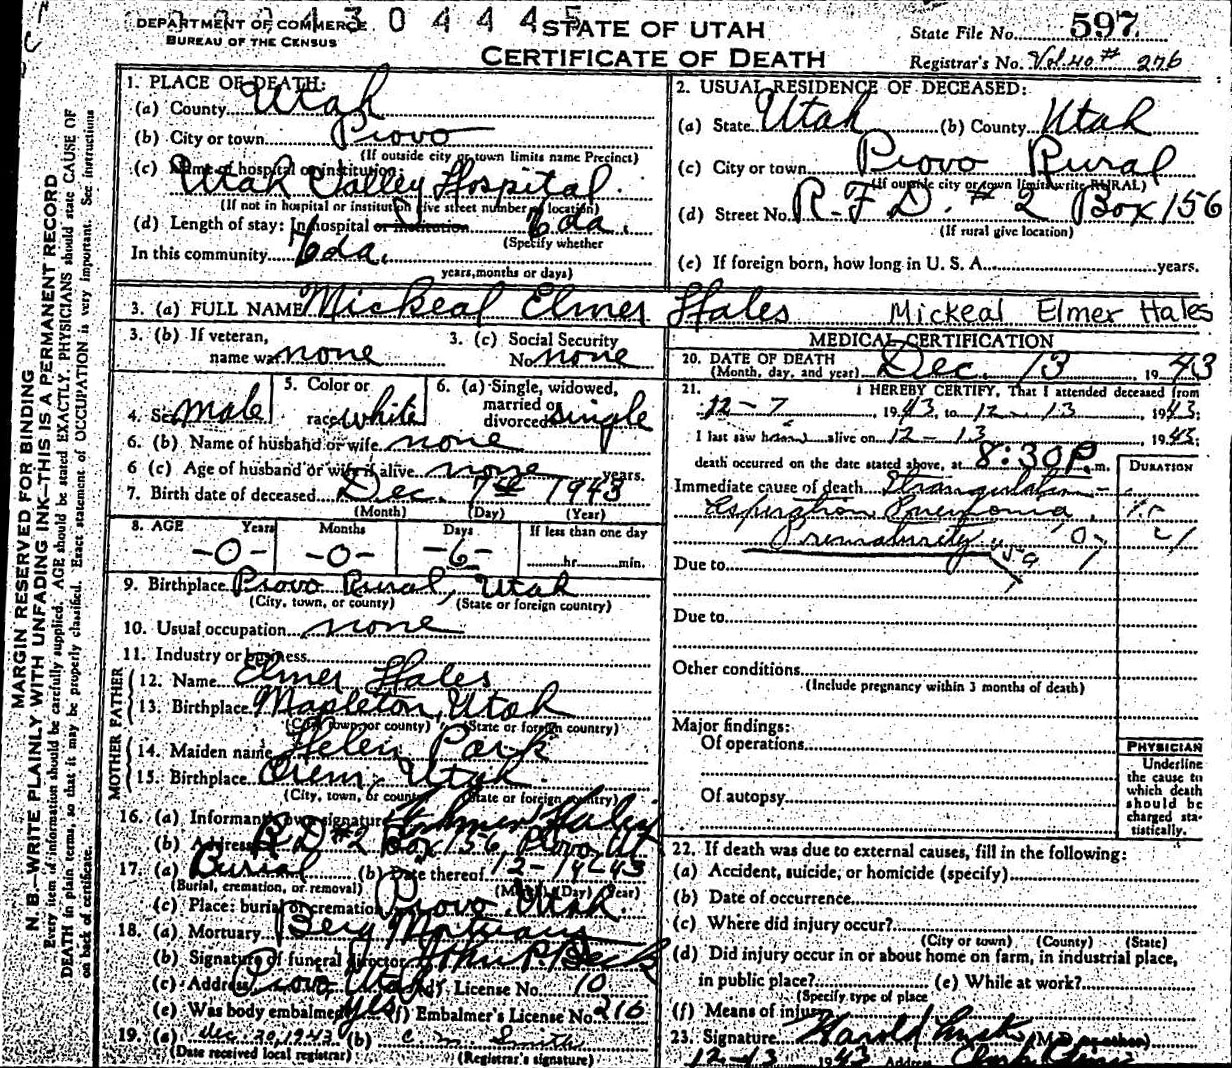 DEPARTMENT OF COMMERCE
BUREAU OF THE CENSUS
STATE OF UTAH
CERTIFICATE OF DEATH
State File No. 597
Registrar's No. Vol. 40 # 276
MARGIN RESERVED FOR BINDING
N. B.—WRITE PLAINLY WITH UNFADING INK—THIS IS A PERMANENT RECORD
Every item of information should be carefully supplied. AGE should be stated EXACTLY. PHYSICIANS should state CAUSE OF
DEATH in plain terms, so that it may be properly classified. Exact statement of OCCUPATION is very important. See instructions
on back of certificate.
1. PLACE OF DEATH:
(a) County Utah
(b) City or town Provo
(If outside city or town limits name Precinct)
(c) Name of hospital or institution:
Utah Valley Hospital
(If not in hospital or institution give street number or location)
(d) Length of stay: In hospital or institution 6 da.
(Specify whether
In this community 6 da.
years, months or days)
2. USUAL RESIDENCE OF DECEASED:
(a) State Utah (b) County Utah
(c) City or town Provo Rural
(If outside city or town limits write RURAL)
(d) Street No. R.F.D. # 2 Box 156
(If rural give location)
(e) If foreign born, how long in U. S. A. years.
3. (a) FULL NAME Mickeal Elmer Hales Mickeal Elmer Hales
3. (b) If veteran,
name war none
3. (c) Social Security
No. none
4. Sex male
5. Color or
race white
6. (a) Single, widowed,
married or
divorced single
6. (b) Name of husband or wife none
6 (c) Age of husband or wife if alive none years.
7. Birth date of deceased Dec. 7th 1943
(Month) (Day) (Year)
8. AGE Years Months Days If less than one day
-0- -0- -6- hr. min.
9. Birthplace Provo Rural, Utah
(City, town, or county) (State or foreign country)
10. Usual occupation none
11. Industry or business
FATHER
12. Name Elmer Hales
13. Birthplace Mapleton, Utah
(City, town, or county) (State or foreign country)
MOTHER
14. Maiden name Helen Park
15. Birthplace Orem, Utah
(City, town, or county) (State or foreign country)
16. (a) Informant's own signature Elmer Hales
(b) Address R D #2 Box 156, Provo, Ut
17. (a) Burial (b) Date thereof 12-19-43
(Burial, cremation, or removal) (Month) (Day) (Year)
(c) Place: burial or cremation Provo Utah.
18. (a) Mortuary Berg Mortuary
(b) Signature of funeral director John P Beck
(c) Address Provo, Utah (d) License No. 10
(e) Was body embalmed yes (f) Embalmer's License No. 216
19. (a) Dec 20, 1943 (b) C. M. Smith
(Date received local registrar) (Registrar's signature)
MEDICAL CERTIFICATION
20. DATE OF DEATH
(Month, day, and year) Dec. 13 1943
21. I HEREBY CERTIFY, That I attended deceased from
12-7, 1943, to 12-13, 1943;
I last saw him alive on 12-13, 1943;
death occurred on the date stated above, at 8:30 P. m.
DURATION
Immediate cause of death Strangulation
Aspiration Pneumonia
Prematurity
Due to
Due to
Other conditions
(Include pregnancy within 3 months of death)
Major findings:
Of operations
Of autopsy
PHYSICIAN
Underline
the cause to
which death
should be
charged sta-
tistically.
22. If death was due to external causes, fill in the following:
(a) Accident, suicide, or homicide (specify)
(b) Date of occurrence
(c) Where did injury occur?
(City or town) (County) (State)
(d) Did injury occur in or about home on farm, in industrial place,
in public place? (e) While at work?
(Specify type of place
(f) Means of injury
23. Signature Harold (M.D. or other)
12-13 1943 Address